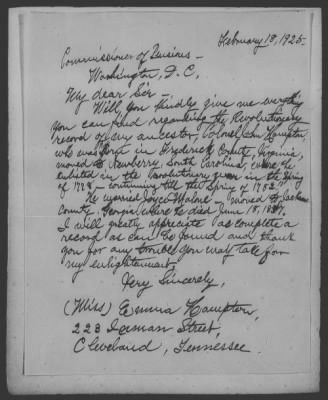 February 18, 1925.
Commissioner of Pensions -
Washington, D.C.
My dear Sir -
Will you kindly give me everything
you can find regarding the Revolutionary
record of my ancestor - Colonel Hampton,
who was born in Frederick County, Virginia,
moved to Newberry, South Carolina, where he
enlisted in the Revolutionary war in the Spring
of 1778 - continuing till the Spring of 1782."
He married Joyce - moved to Jackson
County, Georgia where he died June 18,
I will greatly appreciate as complete a
record as can be found and thank
you for any trouble you may take for
my enlightenment.
Very Sincerely,
(Miss) Emma Hampton,
223 Street,
Cleveland, Tennessee.